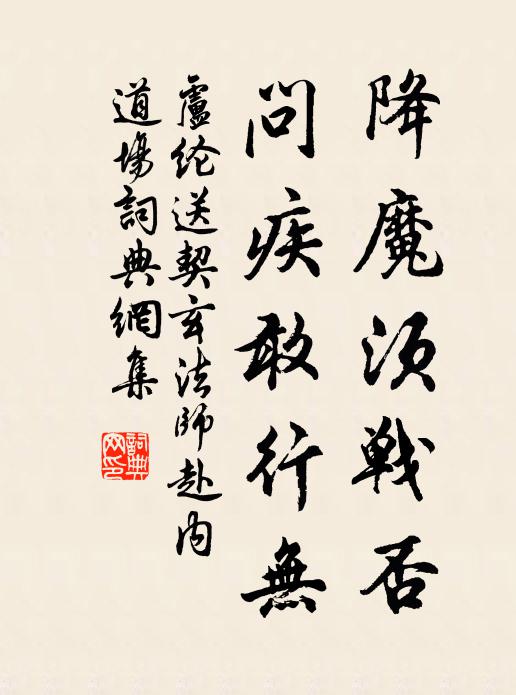 降魔須戰否
問疾敢行無
盧纶送契玄法師赴内
道場詞典網集
詞典网印